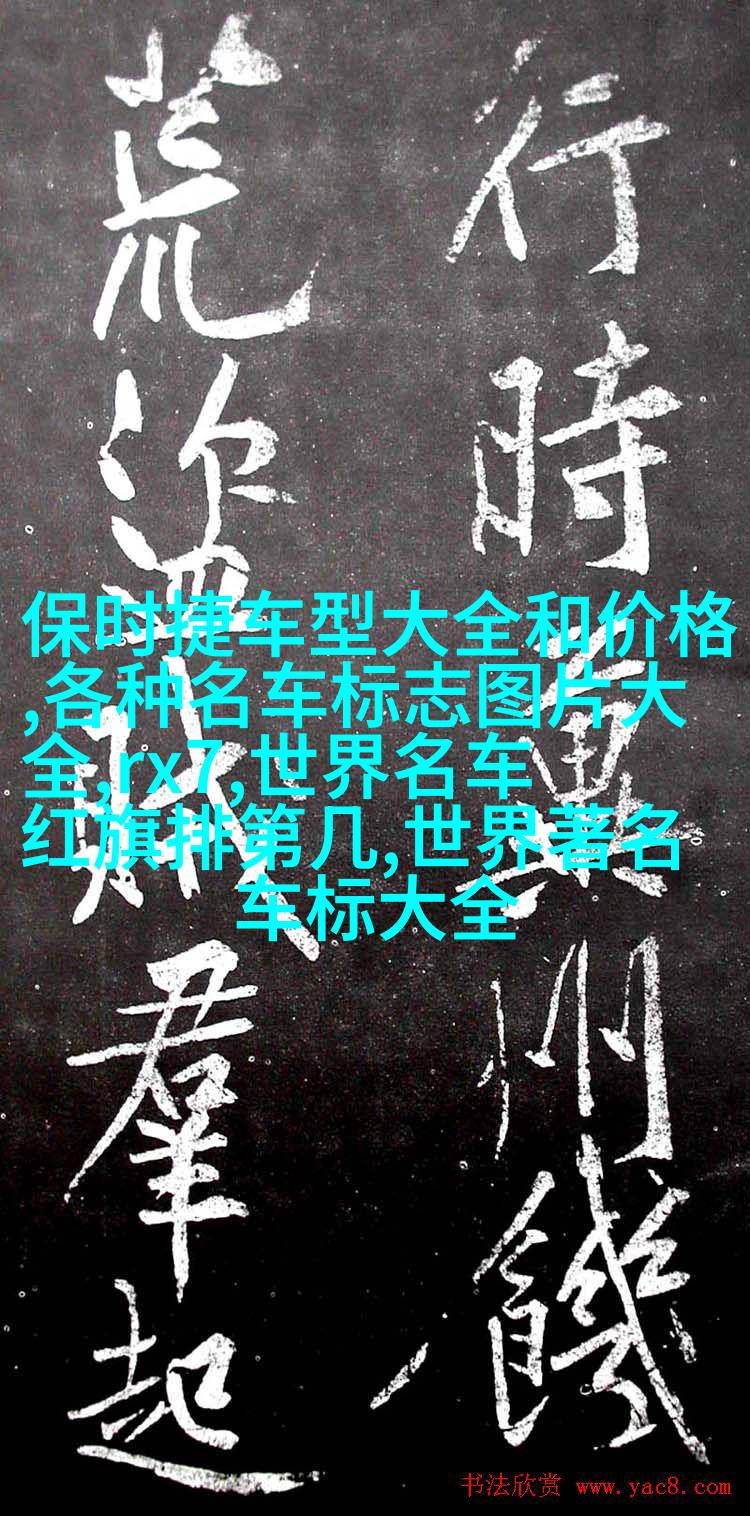 行時州饑
荒盜賊羣起
保时捷车型大全和价格
,各种名车标志图片大
全,rx7,世界名车
红旗排第几,世界著名
车标大全
书法欣赏 www.yac8.com